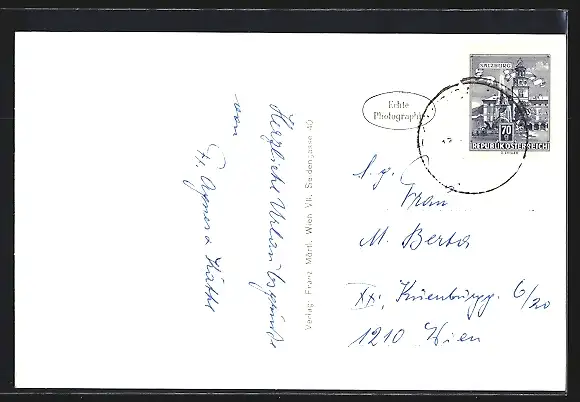 Herzliche Urlaubsgrüße
von
Agnes & Käthe
Verlag: Franz Mörtl, Wien VII, Seidengasse 40
Echte
Photographie
SALZBURG
70
g
REPUBLIK ÖSTERREICH
Frau
M. Berta
XX., Kuenburgg. 6/20
1210 Wien